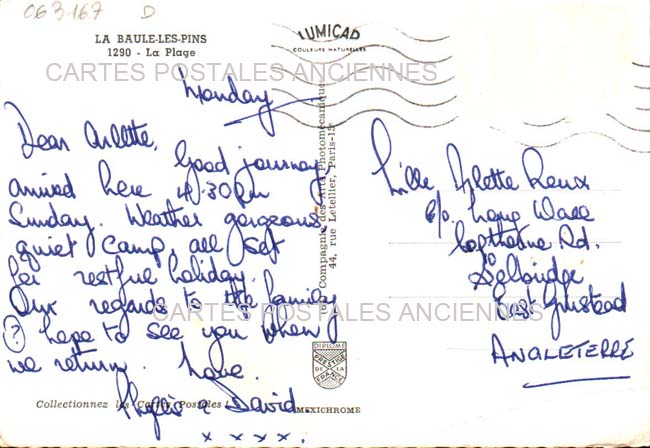 063-167 D
LA BAULE-LES-PINS
1290 - La Plage
LUMICAP
COULEURS NATURELLES
CARTES POSTALES ANCIENNES
Monday
Dear Arlette,
Good journey,
arrived here 4.30pm
Sunday. Weather gorgeous
quiet camp, all set
for restful holiday.
Our regards to the family
? hope to see you when
we return. Love.
Phyllis & David
x x x x.
Compagnie des Arts Photomécaniques
44, rue Letellier, Paris-15e
Mlle Arlette
c/o
Copthorne Rd.
Felbridge
East Grinstead
ANGLETERRE
CARTES POSTALES ANCIENNES
DIPLOME
PRESTIGE
DE LA
FRANCE
Collectionnez les Cartes Postales !
MEXICHROME